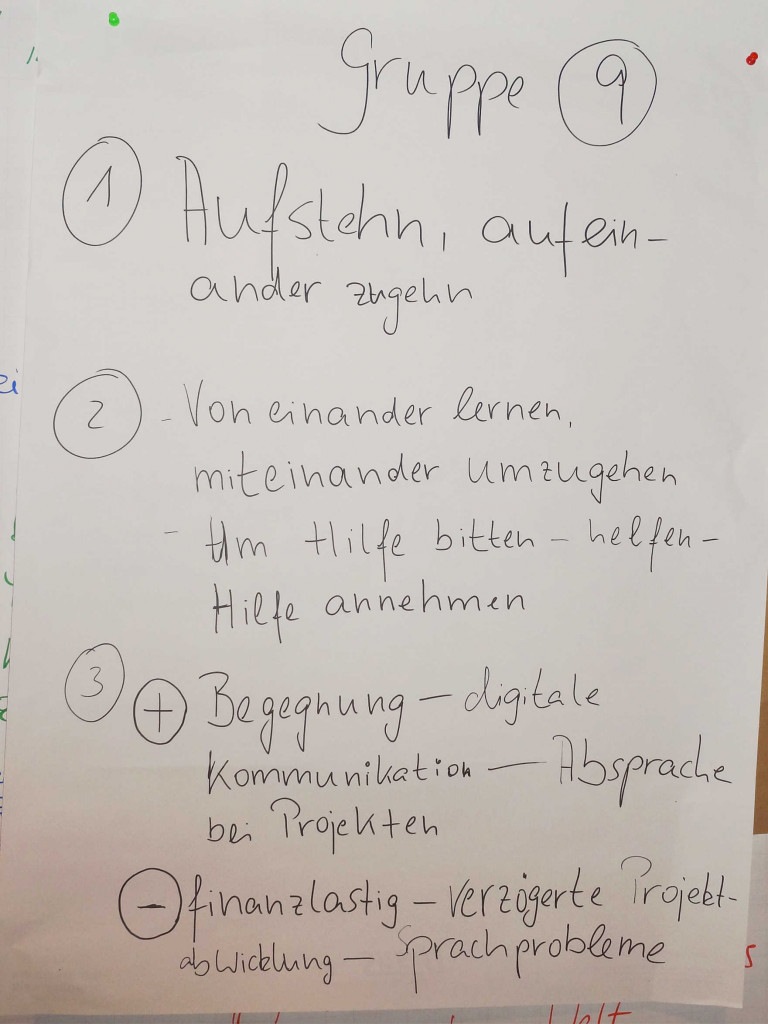 Gruppe 9
1 Aufstehn, aufein-
ander zugehn
2 - Von einander lernen,
miteinander umzugehen
- Um Hilfe bitten - helfen -
Hilfe annehmen
3 + Begegnung - digitale
Kommunikation - Absprache
bei Projekten
- finanzlastig - verzögerte Projekt-
abwicklung - Sprachprobleme